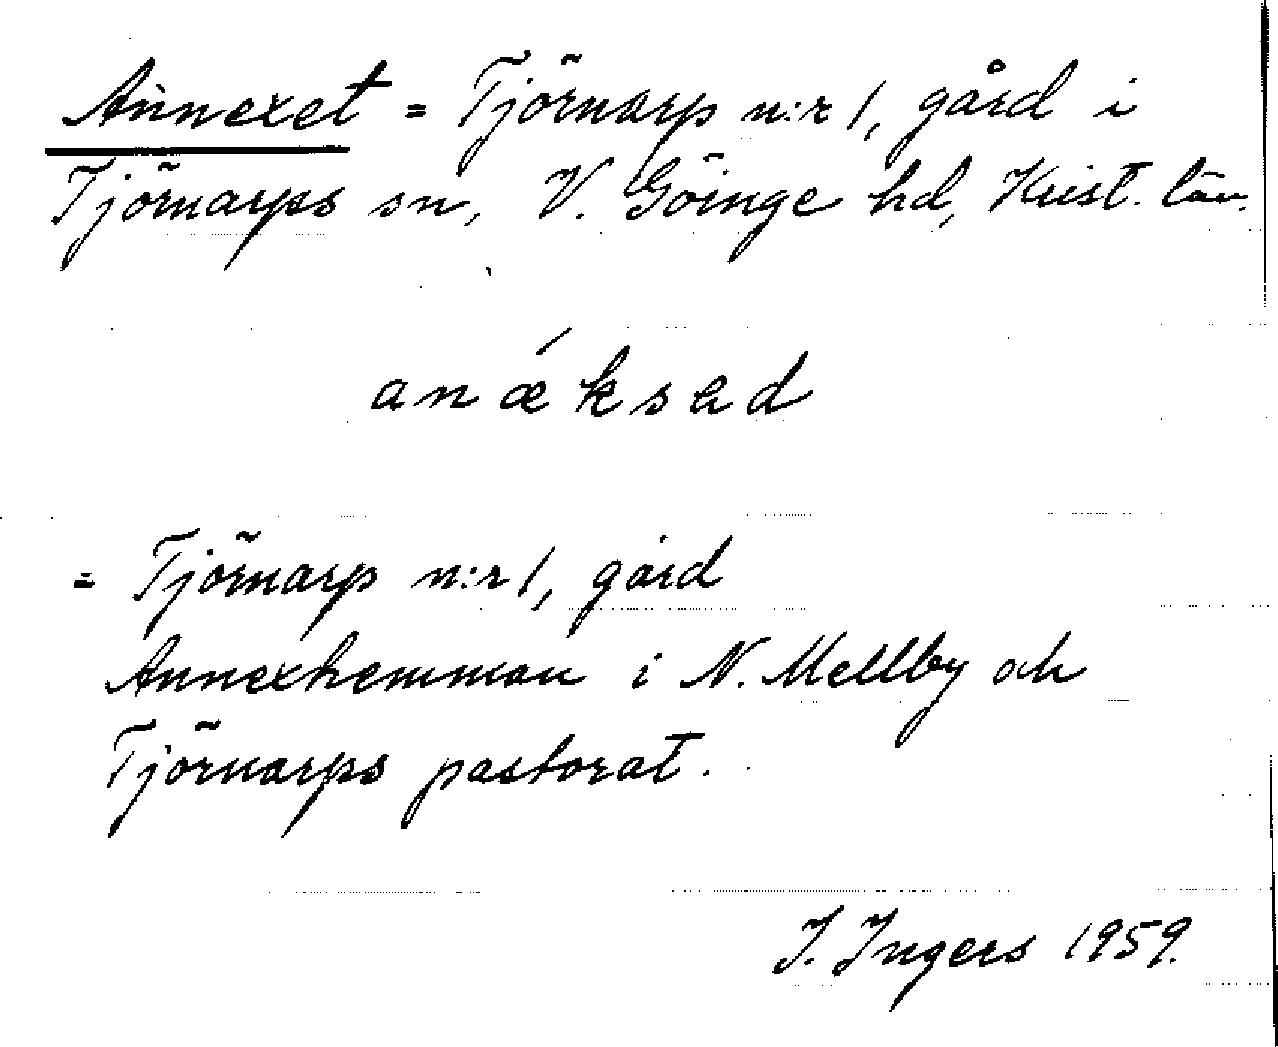 Annexet = Tjörnarp n:r 1, gård i
Tjörnarps sn, V. Göinge hd, Krist. län.
anǽksad
= Tjörnarp n:r 1, gård
Annexhemman i N. Mellby och
Tjörnarps pastorat.
I. Ingers 1959.